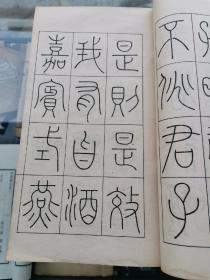 不佻君子
是則是效
我有旨酒
嘉賓式燕